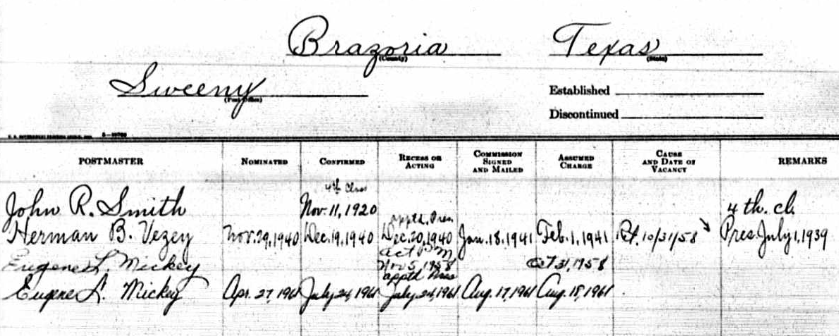 Brazoria Texas
(County) (State)
Sweeny
(Post Office)
Established
Discontinued
POSTMASTER NOMINATED CONFIRMED RECESS OR ACTING COMMISSION SIGNED AND MAILED ASSUMED CHARGE CAUSE AND DATE OF VACANCY REMARKS
4th Class
John R. Smith Nov. 11, 1920 4th. cl.
apptd. Pres.
Herman B. Vezey Nov. 29, 1940 Dec. 19, 1940 Dec. 20, 1940 Jan. 18, 1941 Feb. 1, 1941 Rt. 10/31/58 Pres. July 1, 1939
act PM
Eugene L. Mickey Nov 5, 1958 Oct 31, 1958
apptd Pres
Eugene L. Mickey Apr. 27, 1961 July 24, 1961 July 24, 1961 Aug. 17, 1961 Aug. 18, 1961